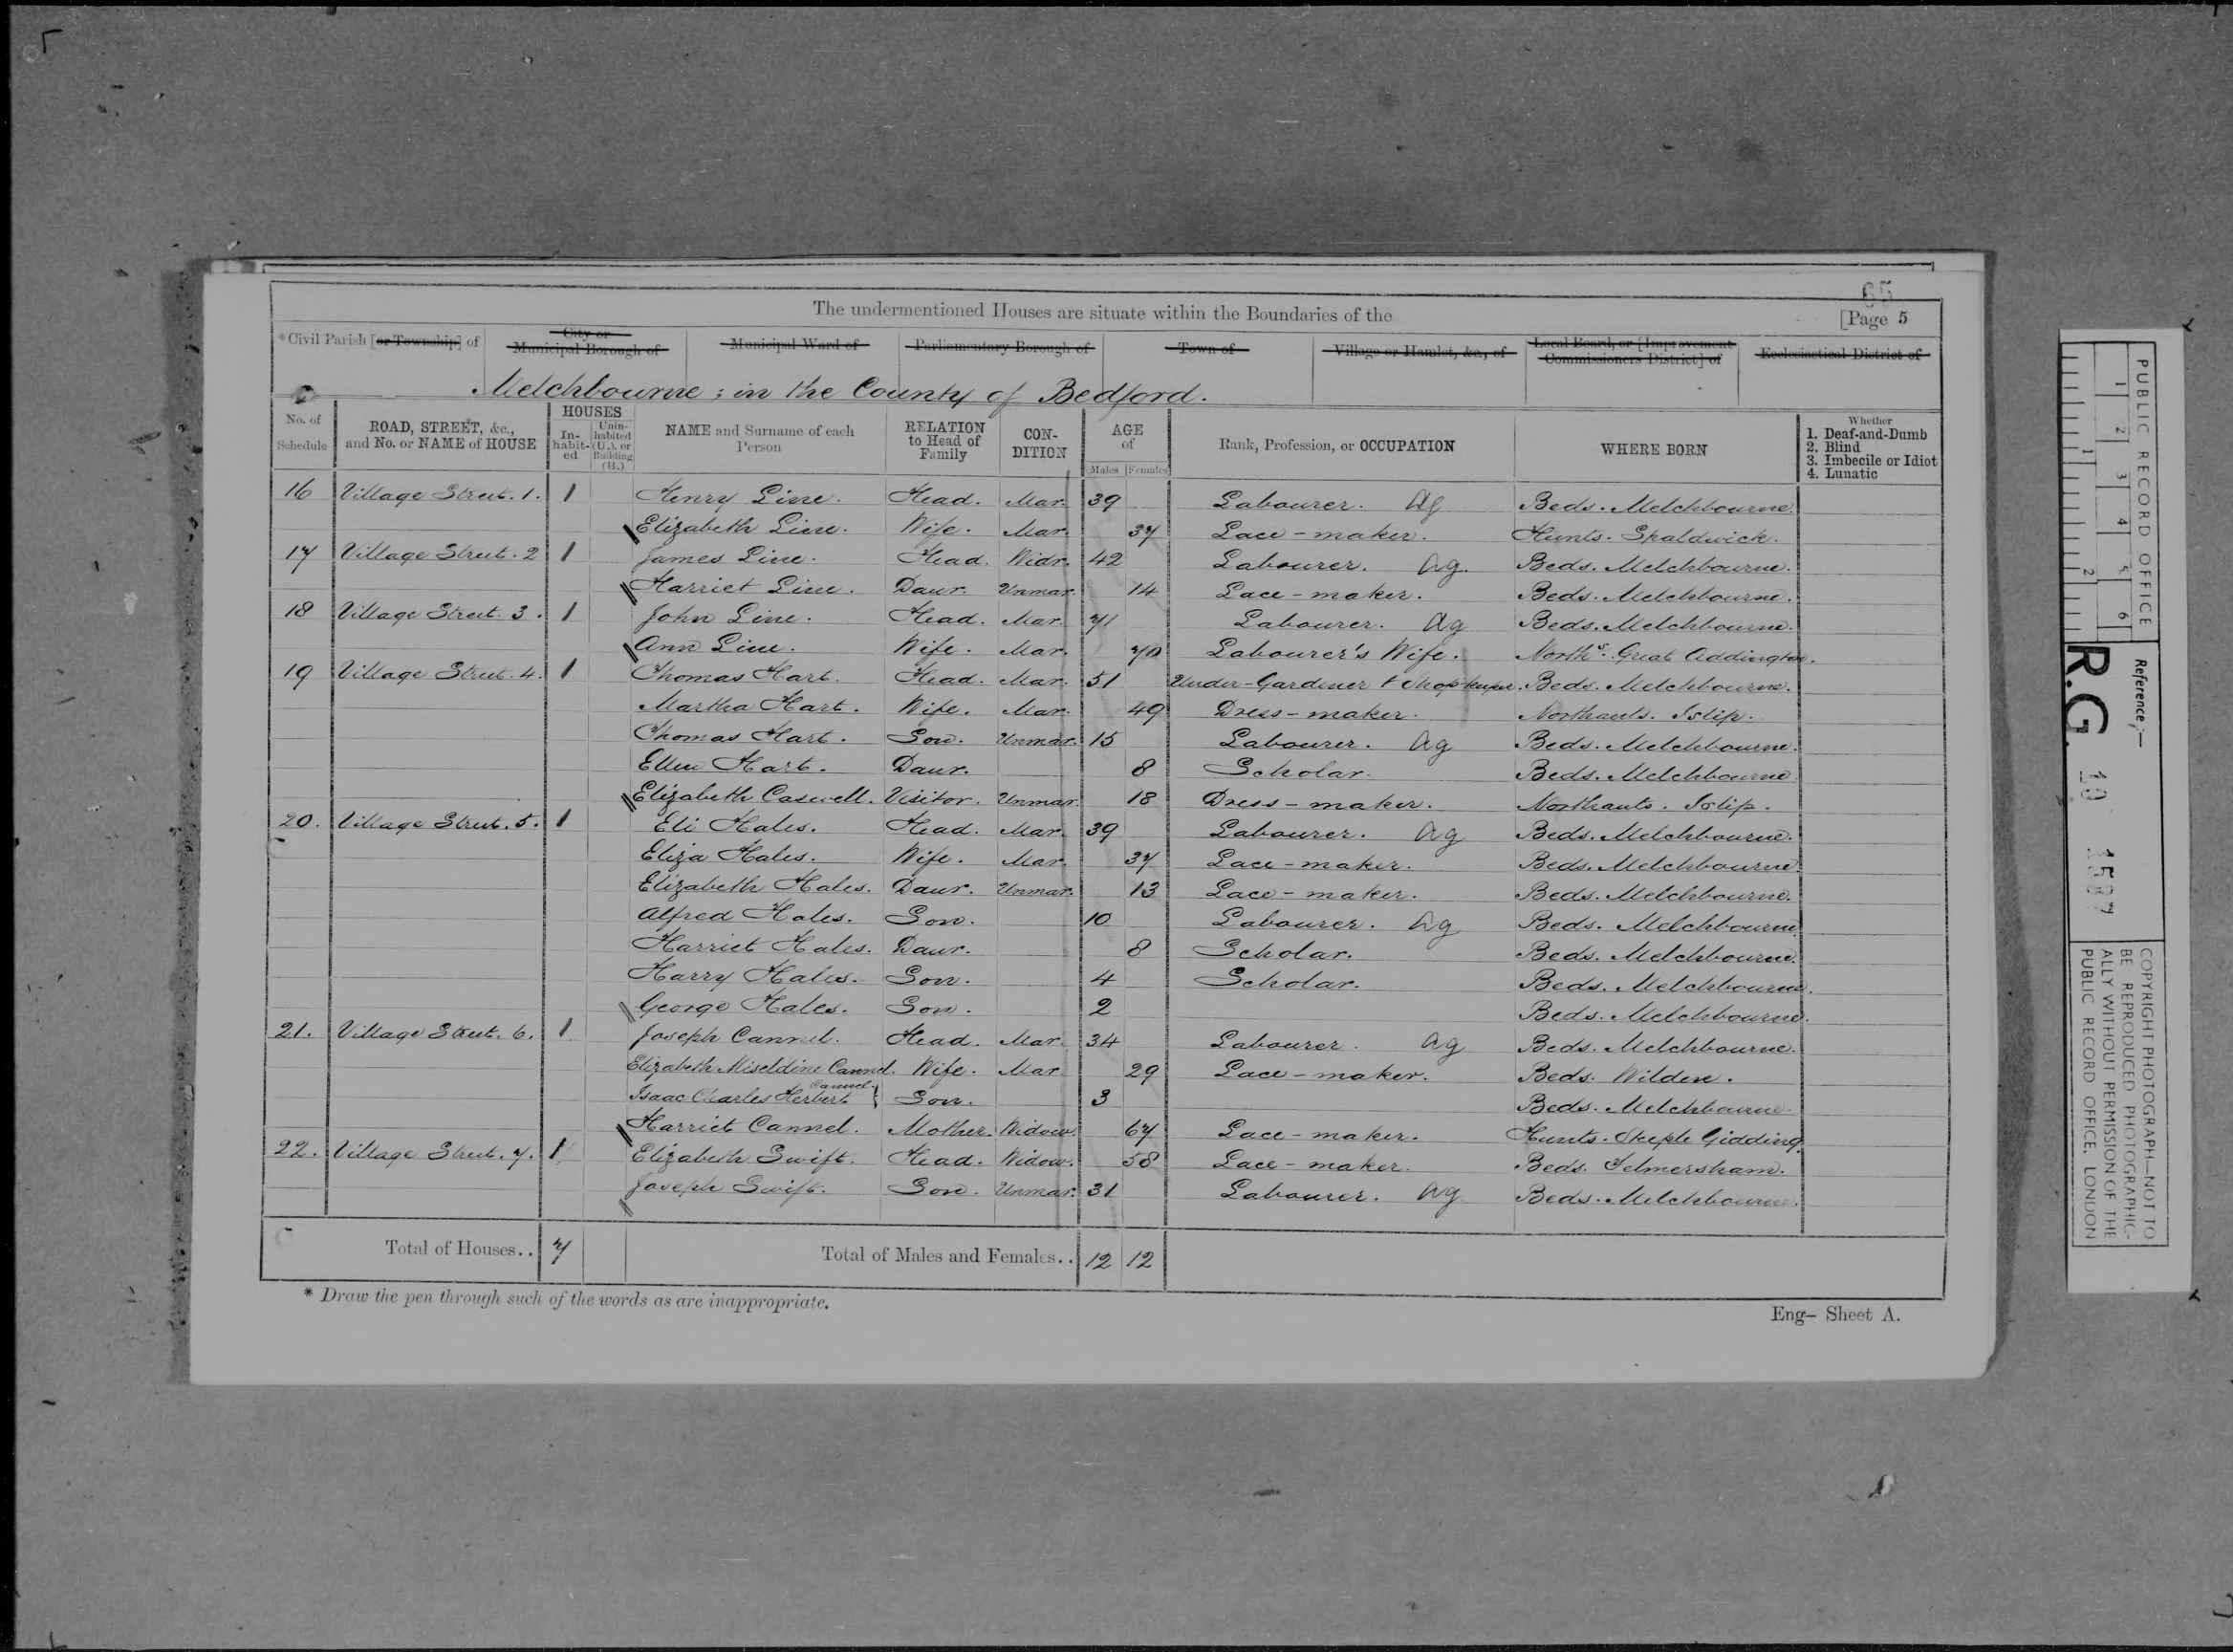 65
The undermentioned Houses are situate within the Boundaries of the
[Page 5
*Civil Parish [or Township] of City or Municipal Borough of Municipal Ward of Parliamentary Borough of Town of Village or Hamlet, &c., of Local Board, or [Improvement Commissioners District] of Ecclesiastical District of
Melchbourne ; in the County of Bedford.
No. of Schedule ROAD, STREET, &c., and No. or NAME of HOUSE HOUSES In-habit-ed Unin-habited (U.), or Building (B.) NAME and Surname of each Person RELATION to Head of Family CON-DITION AGE of Males Females Rank, Profession, or OCCUPATION WHERE BORN Whether 1. Deaf-and-Dumb 2. Blind 3. Imbecile or Idiot 4. Lunatic
16 Village Street. 1. 1 Henry Line. Head. Mar. 39 Labourer. Ag Beds. Melchbourne.
Elizabeth Line. Wife. Mar. 37 Lace-maker. Hunts. Spaldwick.
17 Village Street. 2 1 James Line. Head. Widr. 42 Labourer. Ag. Beds. Melchbourne.
Harriet Line. Daur. Unmar. 14 Lace-maker. Beds. Melchbourne.
18 Village Street. 3. 1 John Line. Head. Mar. 71 Labourer. Ag Beds. Melchbourne.
Ann Line. Wife. Mar. 70 Labourer's Wife. Norths. Great Addington.
19 Village Street. 4. 1 Thomas Hart. Head. Mar. 51 Under-Gardener & Shop-keeper. Beds. Melchbourne.
Martha Hart. Wife. Mar. 49 Dress-maker. Northants. Islip.
Thomas Hart. Son. Unmar. 15 Labourer. Ag Beds. Melchbourne.
Ellen Hart. Daur. 8 Scholar. Beds. Melchbourne
Elizabeth Caswell. Visitor. Unmar. 18 Dress-maker. Northants. Islip.
20. Village Street. 5. 1 Eli Hales. Head. Mar. 39 Labourer. Ag Beds. Melchbourne.
Eliza Hales. Wife. Mar. 37 Lace-maker. Beds. Melchbourne.
Elizabeth Hales. Daur. Unmar. 13 Lace-maker. Beds. Melchbourne.
Alfred Hales. Son. 10 Labourer. Ag Beds. Melchbourne.
Harriet Hales. Daur. 8 Scholar. Beds. Melchbourne.
Harry Hales. Son. 4 Scholar. Beds. Melchbourne.
George Hales. Son. 2 Beds. Melchbourne.
21. Village Street. 6. 1 Joseph Cannel. Head. Mar. 34 Labourer. Ag Beds. Melchbourne.
Elizabeth Miseldine Cannel. Wife. Mar 29 Lace-maker. Beds. Wilden.
Isaac Charles Herbert Cannel. Son. 3 Beds. Melchbourne.
Harriet Cannel. Mother. Widow. 67 Lace-maker. Hunts. Steeple Gidding.
22. Village Street. 7. 1 Elizabeth Swift. Head. Widow. 58 Lace-maker. Beds. Felmersham.
Joseph Swift. Son. Unmar. 31 Labourer. Ag Beds. Melchbourne.
Total of Houses.. 7 Total of Males and Females.. 12 12
* Draw the pen through such of the words as are inappropriate.
Eng- Sheet A.
PUBLIC RECORD OFFICE
1 2 3 4 5 6
1 2
Reference;-
R.G. 10 1507
COPYRIGHT PHOTOGRAPH-NOT TO
BE REPRODUCED PHOTOGRAPHIC-
ALLY WITHOUT PERMISSION OF THE
PUBLIC RECORD OFFICE, LONDON